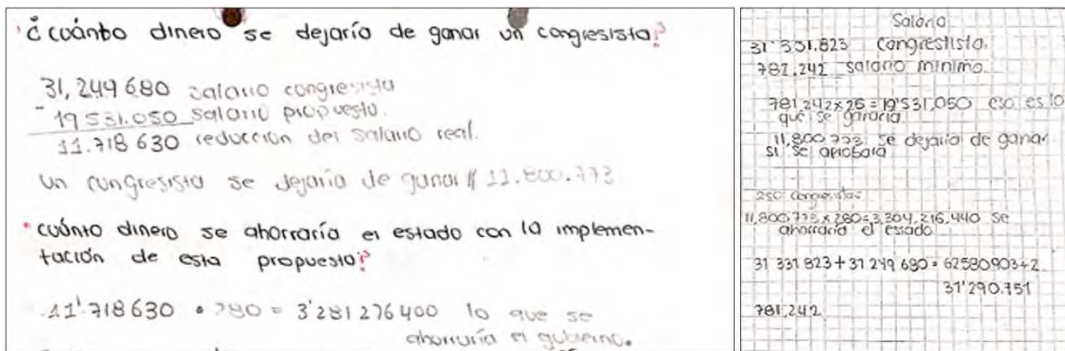 ¿cuánto dinero se dejaría de ganar un congresista?
31,249 680 salario congresista
- 19 531.050 salario propuesto.
11.718 630 reducción del salario real.
Un congresista se dejaría de ganar // 11.800.773
cuánto dinero se ahorraría el estado con la implemen-
tación de esta propuesta?
11'718630 • 280 = 3'281276400 lo que se
ahorraría el gobierno.
Salario
31'331.823 congresista.
781.242 salario minimo
781.242x25 = 19'531.050 eso es lo
que se ganaria
11,800 773: se dejaria de ganar
si se aprobara
280 congresistas
11,800 773 x 280=3,304,216.440 se
ahorraria el estado
31 331 823 + 31 249 680 = 62580903÷2
31'290.751
781,242